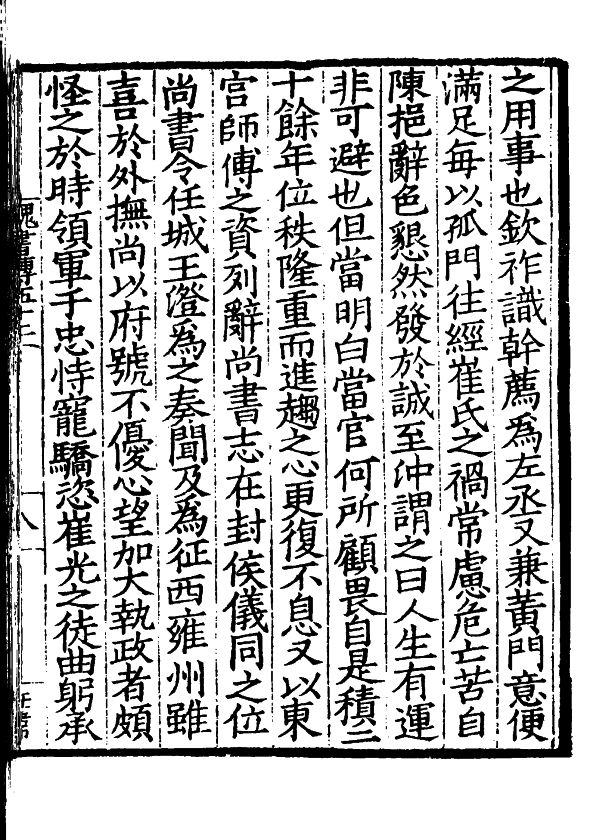 之用事也欽祚識幹薦爲左丞又兼黃門意便
滿足每以孤門往經崔氏之禍常慮危亡苦自
陳挹辭色懇然發於誠至沖謂之曰人生有運
非可避也但當明白當官何所顧畏自是積二
十餘年位秩隆重而進趨之心更復不息又以東
宮師傅之資列辭尚書志在封侯儀同之位
尚書令任城王澄爲之奏聞及爲征西雍州雖
喜於外撫尚以府號不優心望加大執政者頗
怪之於時領軍于忠恃寵驕恣崔光之徒曲躬承
魏書傳五十三
八